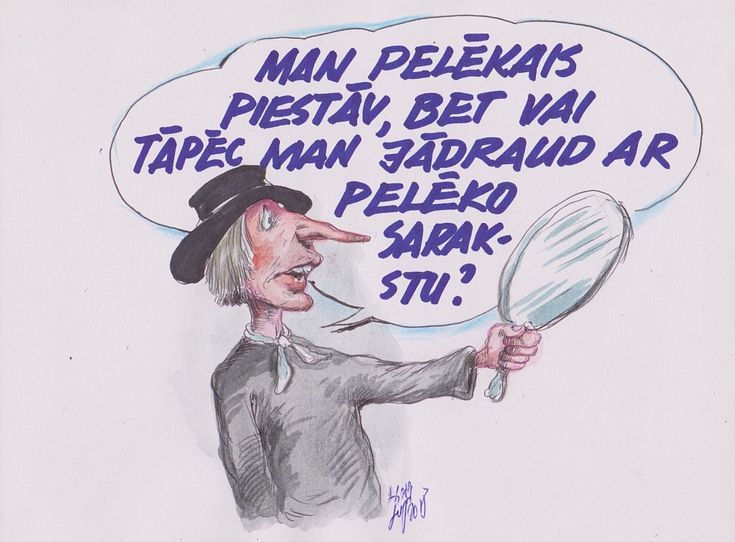 MAN PELĒKAIS
PIESTĀV, BET VAI
TĀPĒC MAN JĀDRAUD AR
PELĒKO
SARAK-
STU?